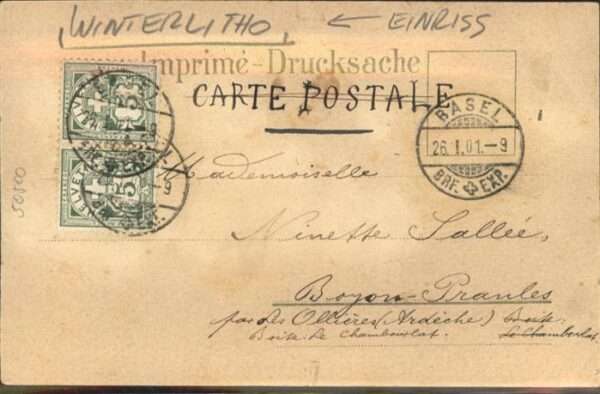 "WINTERLITHO" ← EINRISS
Imprimé-Drucksache
CARTE POSTALE
BASEL
26. I. 01. – 9
BRF. EXP.
HELVETIA
5
HELVETIA
5
Mademoiselle
Ninette Sallée,
Boyon-Pranles
par les Ollières (Ardèche)
Boite de Chambourlat.
50100